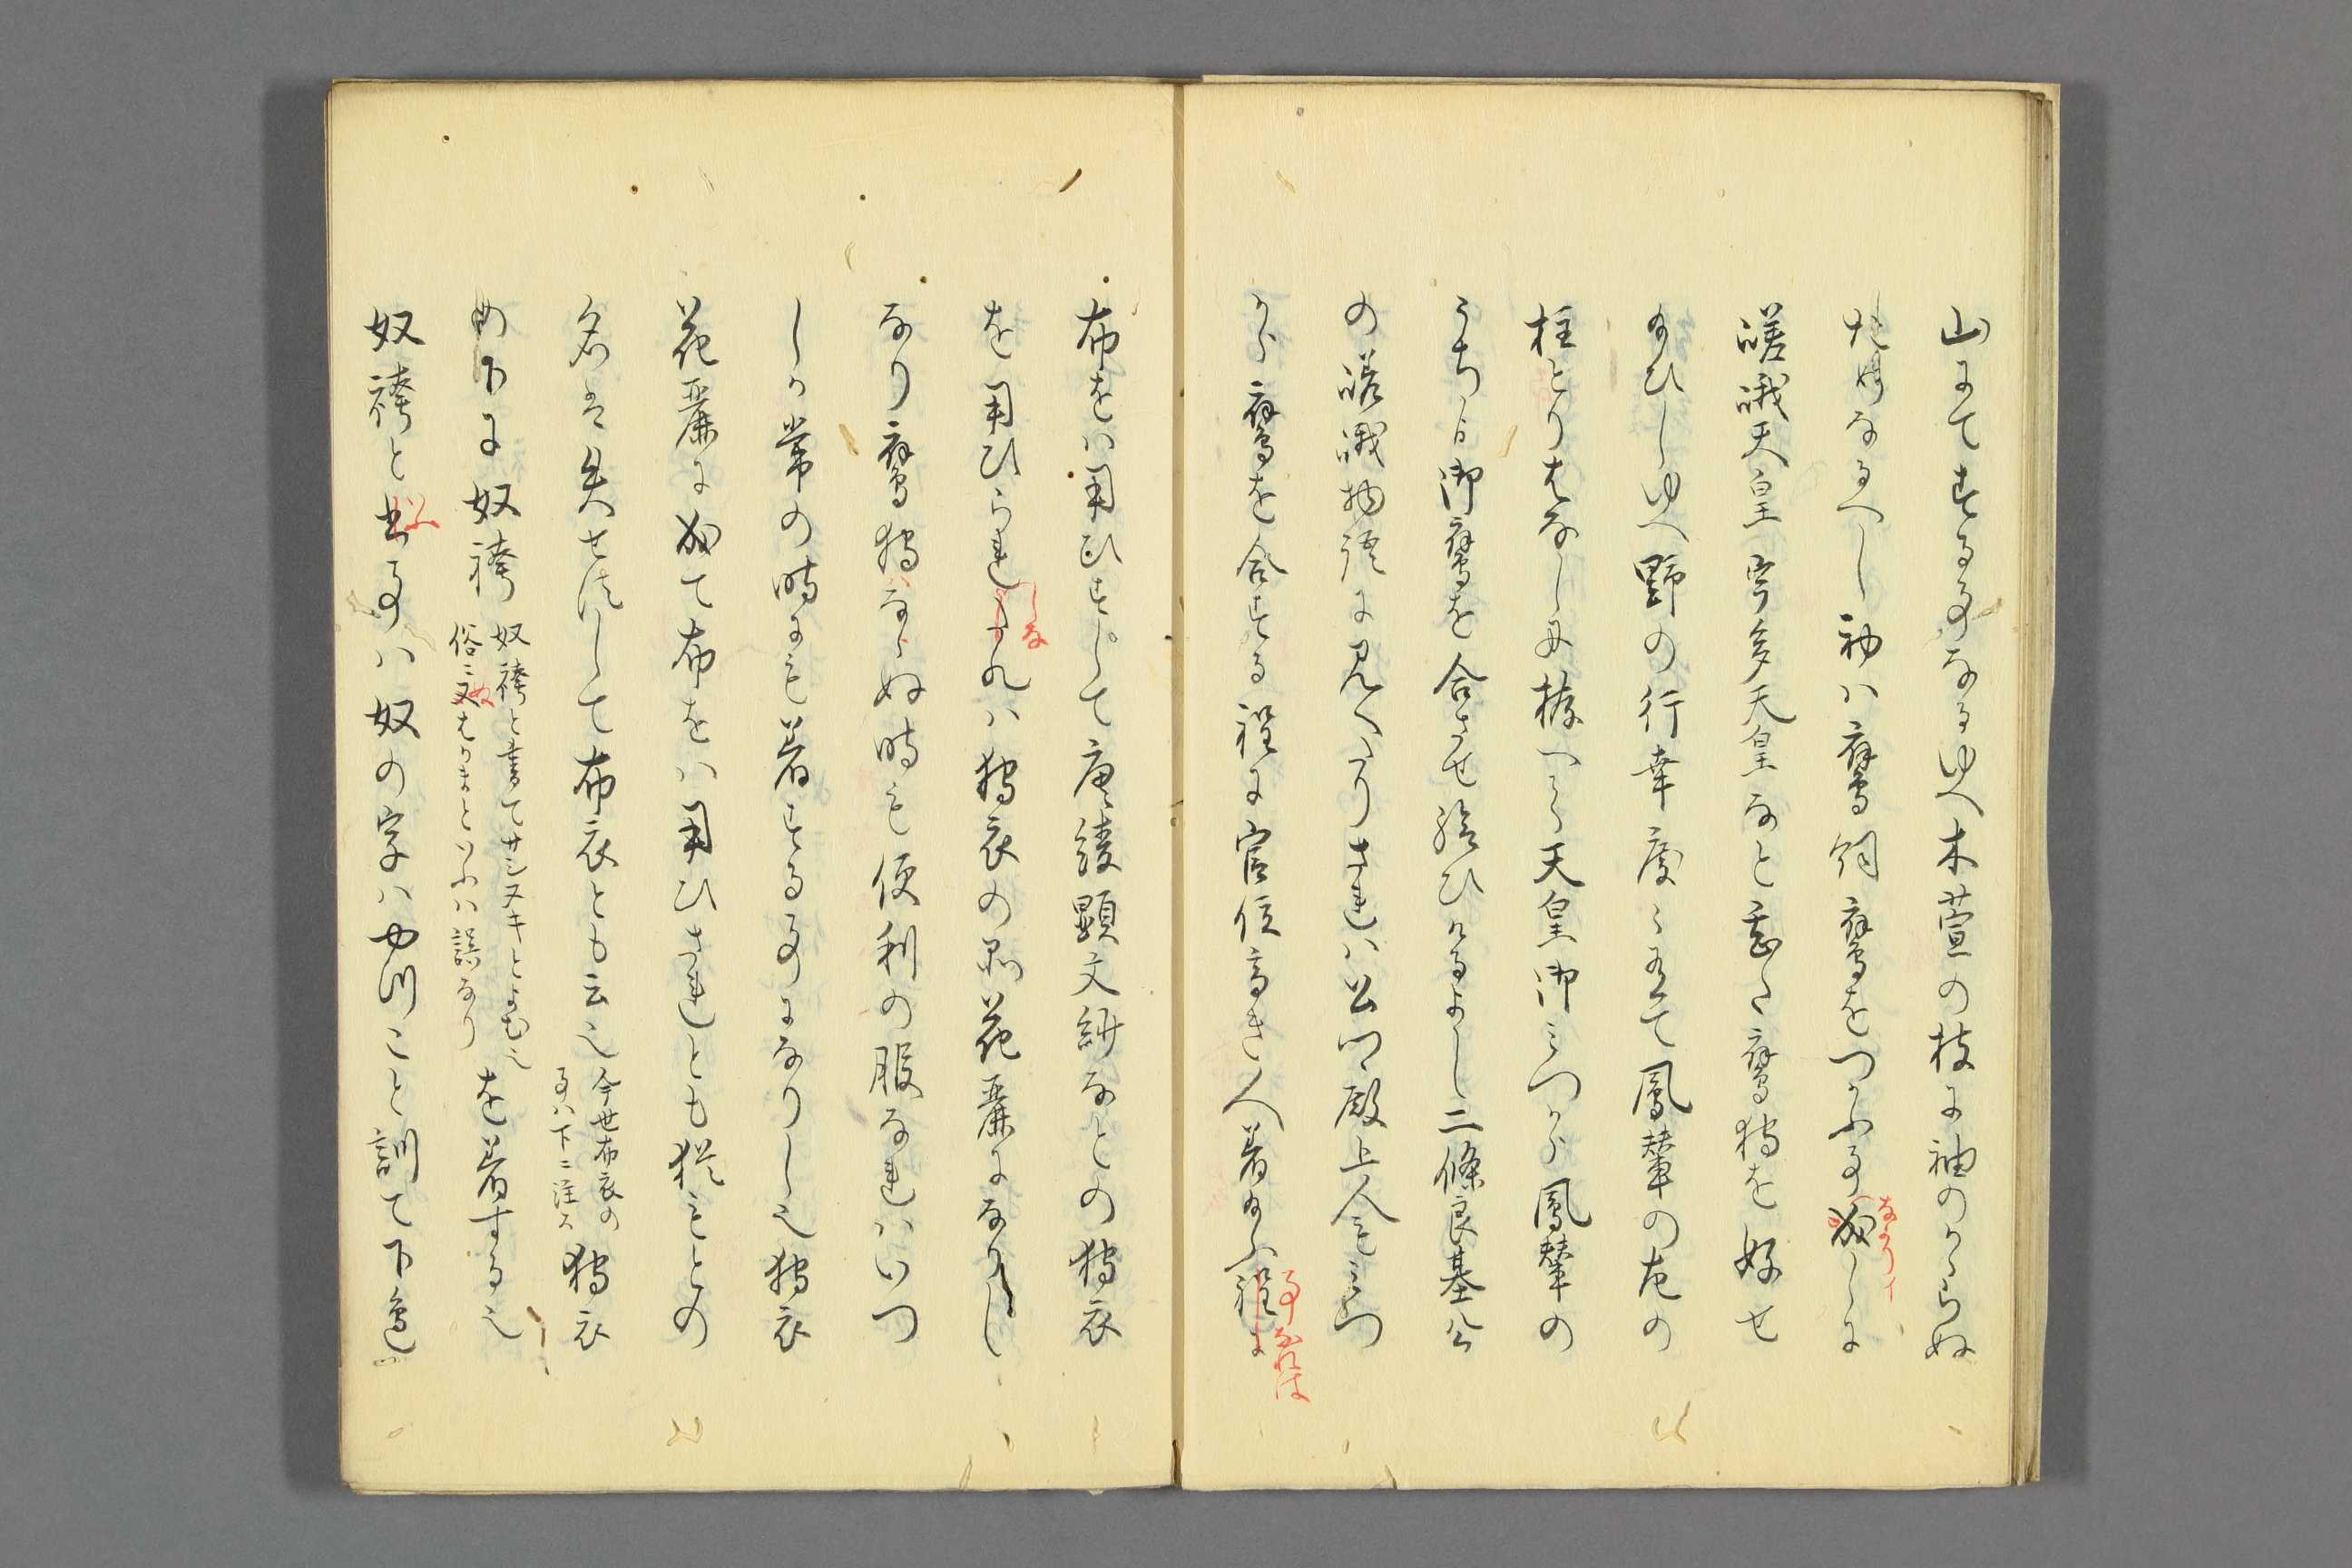 山にてする事なるゆへ木萱の枝に袖のかゝらぬ
ためなるへし初ハ鷹飼鷹をつかふ事
嵯峨天皇宇多天皇なと甚た鷹狩を好せ
給ひしゆへ野の行幸度々有て鳳輦の左の
柱とりはなし
天皇御ミつから鳳輦の
うちより御鷹を合させ給ひけるよし二條良基公
の嵯峨物語に見へたりされハ公卿殿上人もミつ
から鷹を合する程に官位高き人着給ふ程に
事なれは
布をハ用ひすして唐綾顕文紗なとの狩衣
を用ひられ
しな
ハ狩衣の品花麗になりし
なり鷹狩ハならぬ時も便利の服なれハいつ
しか常の時にも着する事になりし也狩衣
花麗に成て布をハ用ひされとも猶もとの
名は失せすして布衣とも云也
今世布衣の
事ハ下ニ注ス
狩衣
の下に奴袴
奴袴と書てサシヌキとよむ也
俗ニ
ぬ
はかまといふハ誤なり
を着する也
奴袴と
いふ
事ハ奴の字ハやつこと訓て下色